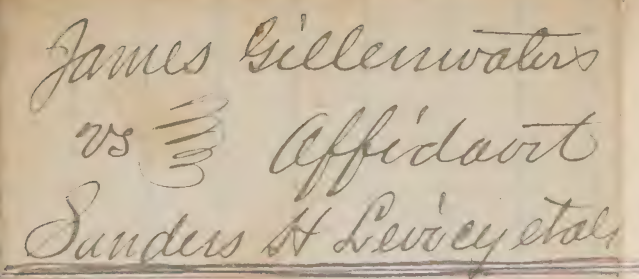 James Gillenwaters
vs Affidavit
Sunders H Levicy et als